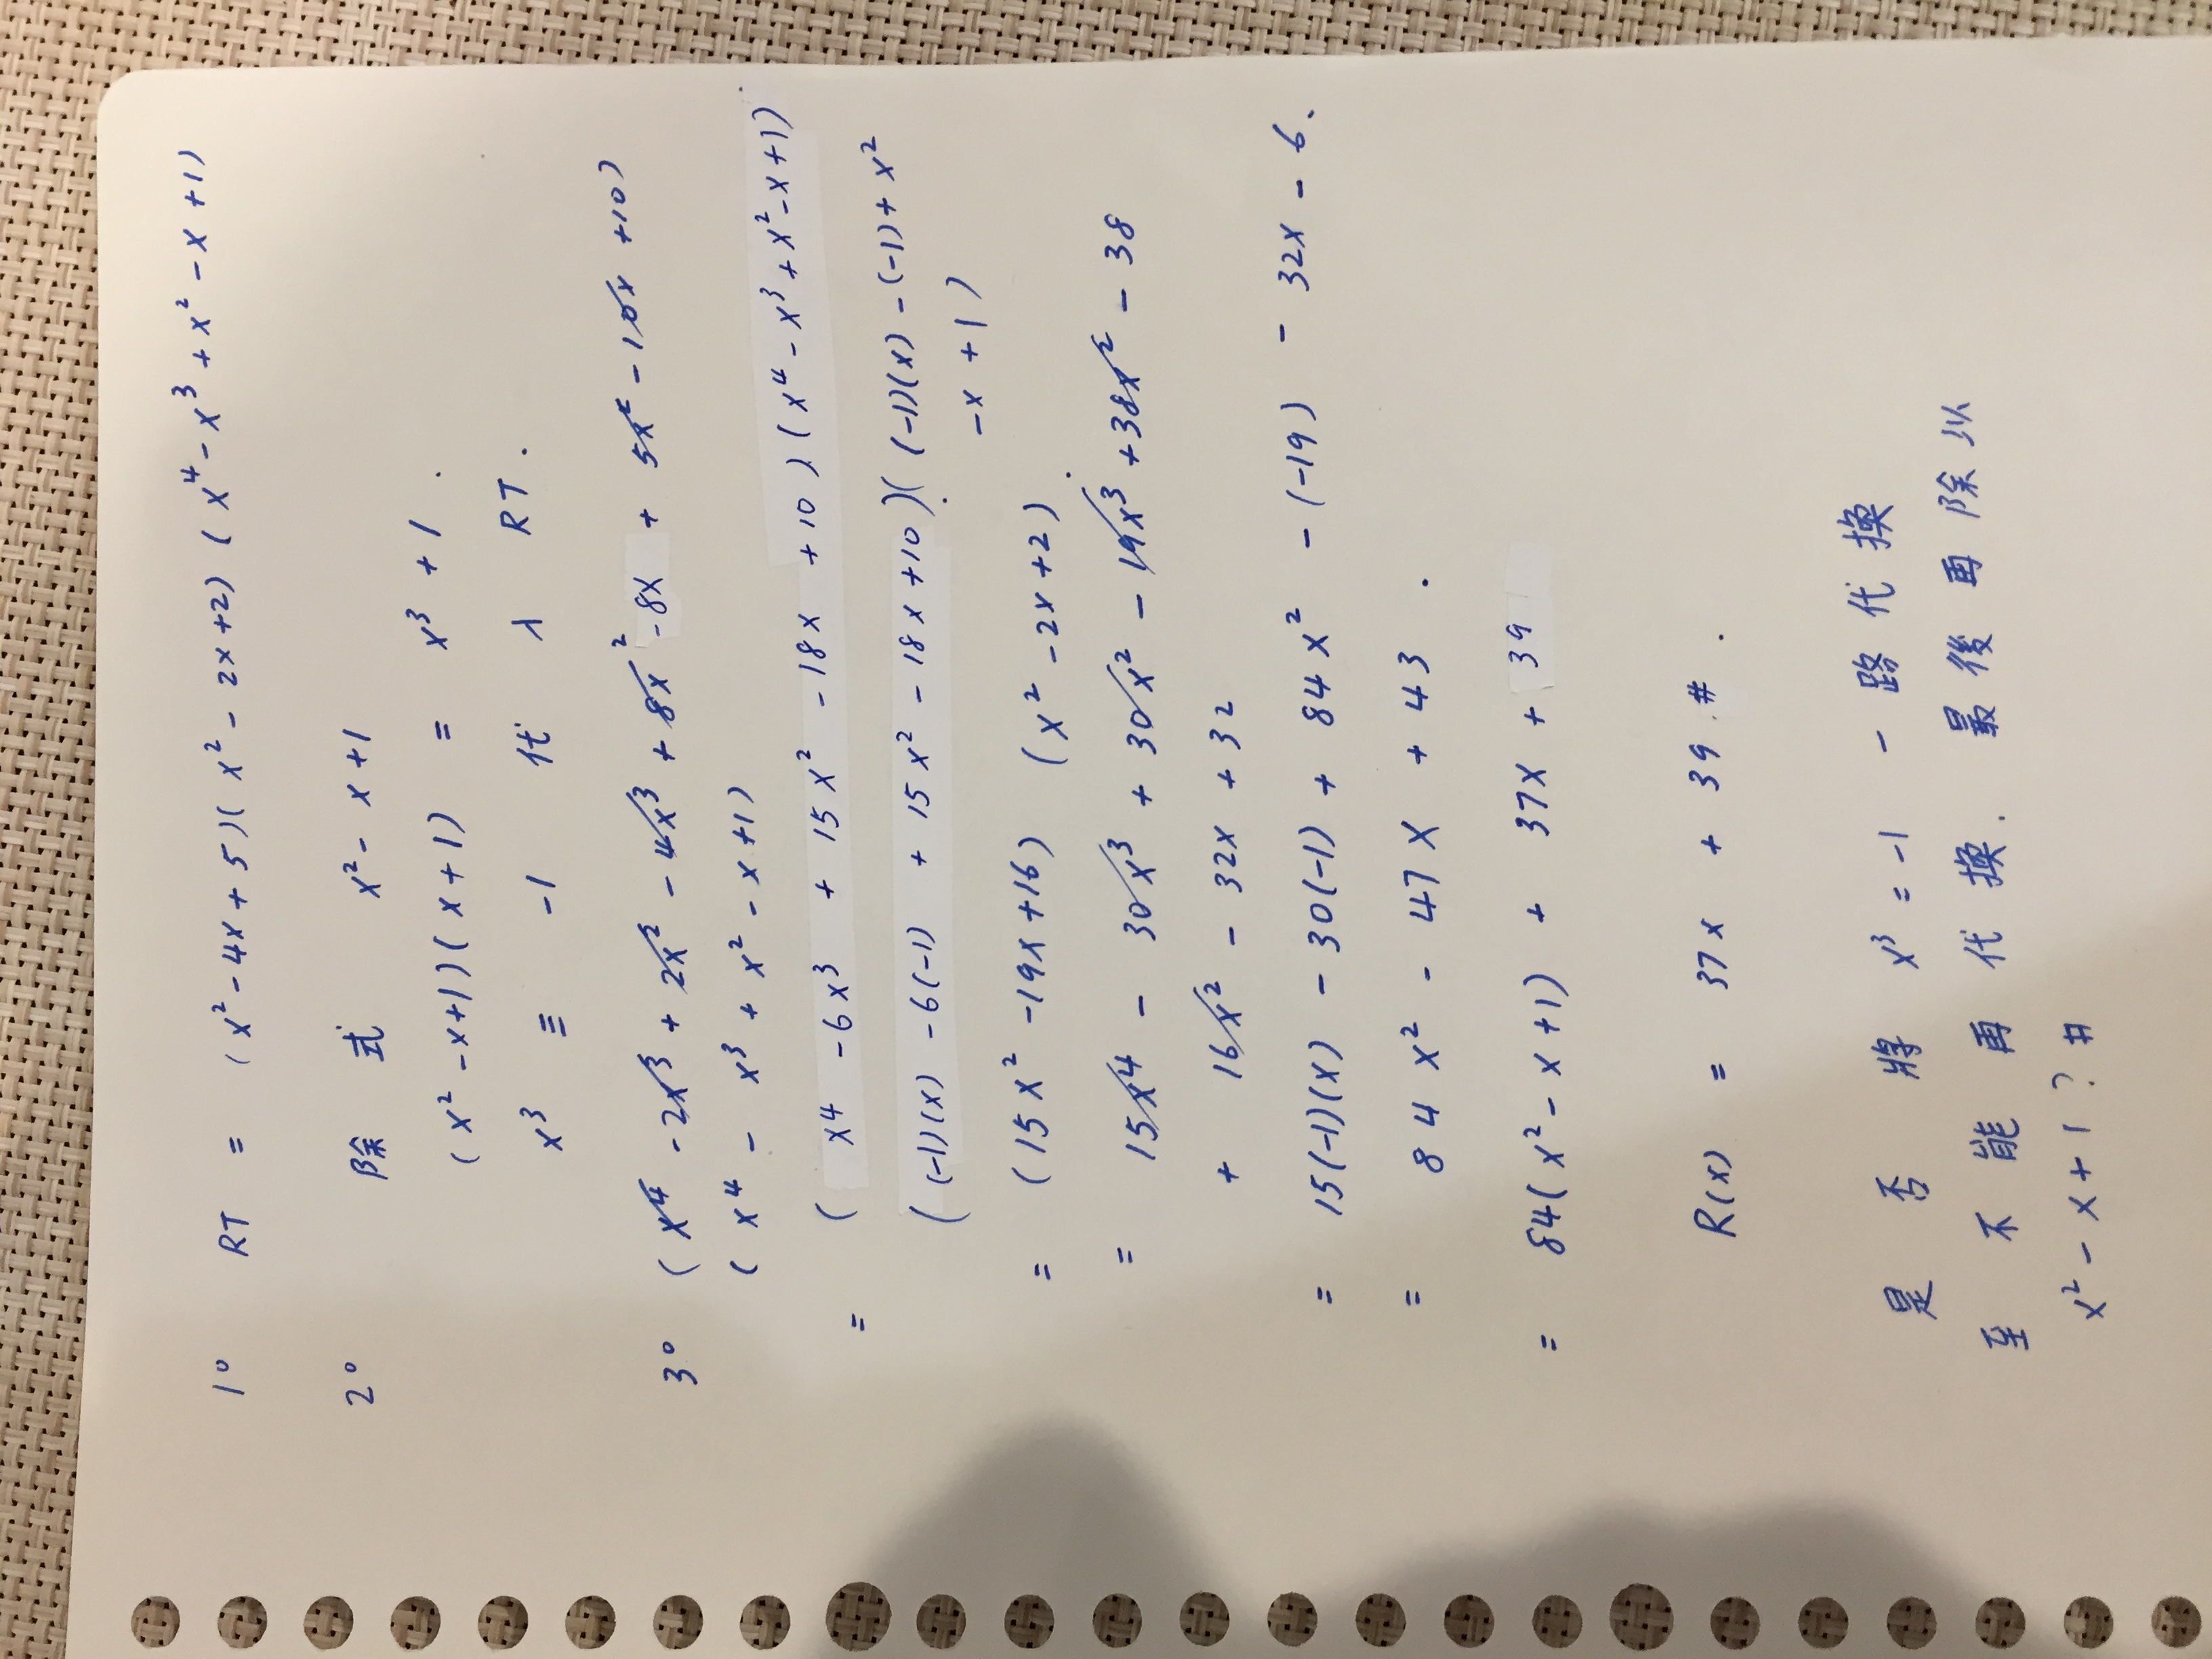 1° RT = (x² - 4x + 5)(x² - 2x + 2)(x⁴ - x³ + x² - x + 1)
2° 除式 x² - x + 1
(x² - x + 1)(x + 1) = x³ + 1.
x³ ≡ -1 代入 RT.
3° (x⁴ - 2x³ + 2x² - 4x³ + 8x² - 8x + 5x² - 10x + 10)
(x⁴ - x³ + x² - x + 1)
= (x⁴ - 6x³ + 15x² - 18x + 10)(x⁴ - x³ + x² - x + 1)
((-1)(x) - 6(-1) + 15x² - 18x + 10)((-1)(x) - (-1) + x²
- x + 1)
= (15x² - 19x + 16)(x² - 2x + 2).
= 15x⁴ - 30x³ + 30x² - 19x³ + 38x² - 38
+ 16x² - 32x + 32
= 15(-1)(x) - 30(-1) + 84x² - (-19) - 32x - 6.
= 84x² - 47x + 43.
= 84(x² - x + 1) + 37x + 39
R(x) = 37x + 39.#.
是否將 x³ = -1 一路代換
至不能再代換. 最後再除以
x² - x + 1?#